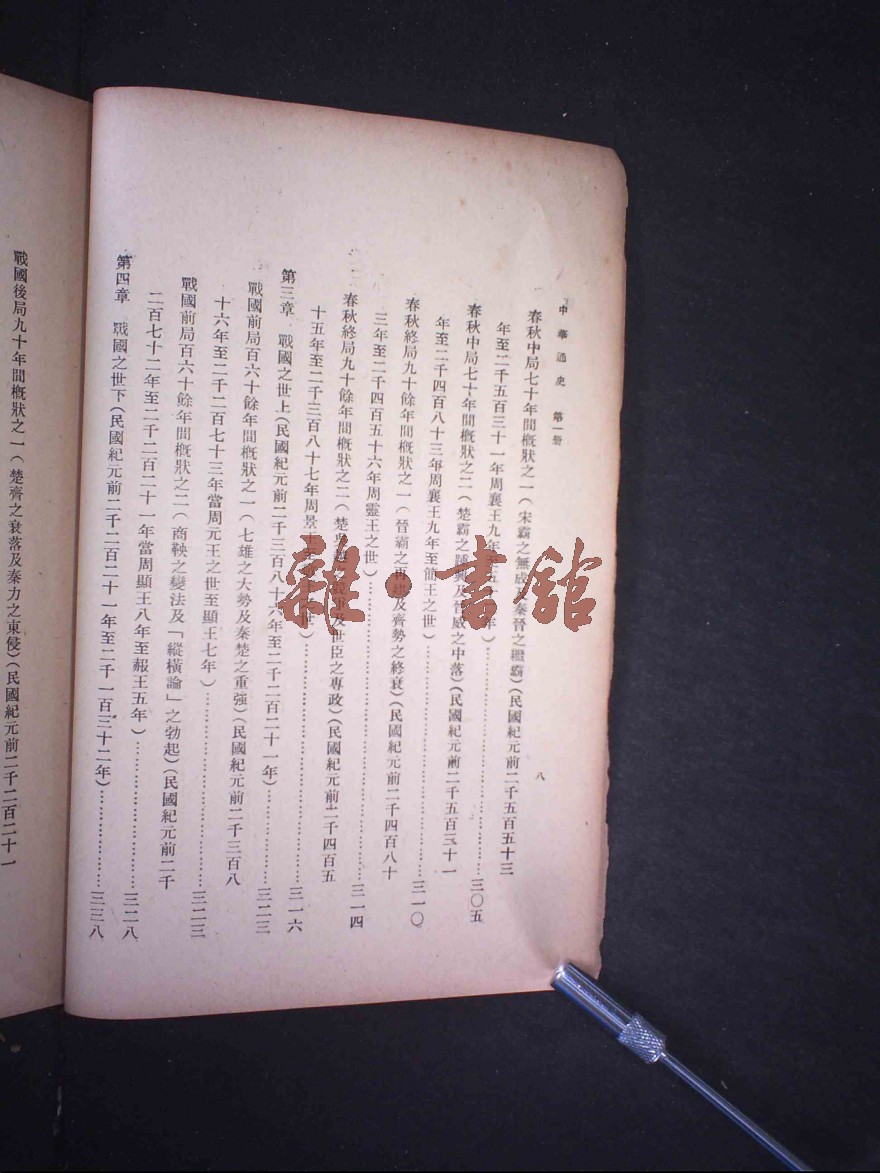 中華通史 第一册
八
春秋中局七十年間概狀之一(宋霸之無成及秦晉之繼霸)(民國紀元前二千五百五十三
年至二千五百三十一年周襄王九年 年)……三〇五
春秋中局七十年間概狀之二(楚霸之 興及晉威之中落)(民國紀元前二千五百三十一
年至二千四百八十三年周襄王九年至簡王之世)……三一〇
春秋終局九十餘年間概狀之一(晉霸之再 及齊勢之終衰)(民國紀元前二千四百八十
三年至二千四百五十六年周靈王之世)……三一四
春秋終局九十餘年間概狀之二(楚 及世臣之專政)(民國紀元前二千四百五
十五年至二千三百八十七年周景 世)……三一六
第三章 戰國之世上(民國紀元前二千三百八十六年至二千二百二十一年)……三二三
戰國前局百六十餘年間概狀之一(七雄之大勢及秦楚之重强)(民國紀元前二千三百八
十六年至二千二百七十三年當周元王之世至顯王七年)……三二三
戰國前局百六十餘年間概狀之二(商鞅之變法及「縱橫論」之勃起)(民國紀元前二千
二百七十二年至二千二百二十一年當周顯王八年至赧王五年)……三二八
第四章 戰國之世下(民國紀元前二千二百二十一年至二千一百三十二年)……三三八
戰國後局九十年間概狀之一(楚齊之衰落及秦力之東侵)(民國紀元前二千二百二十一
雜·書館